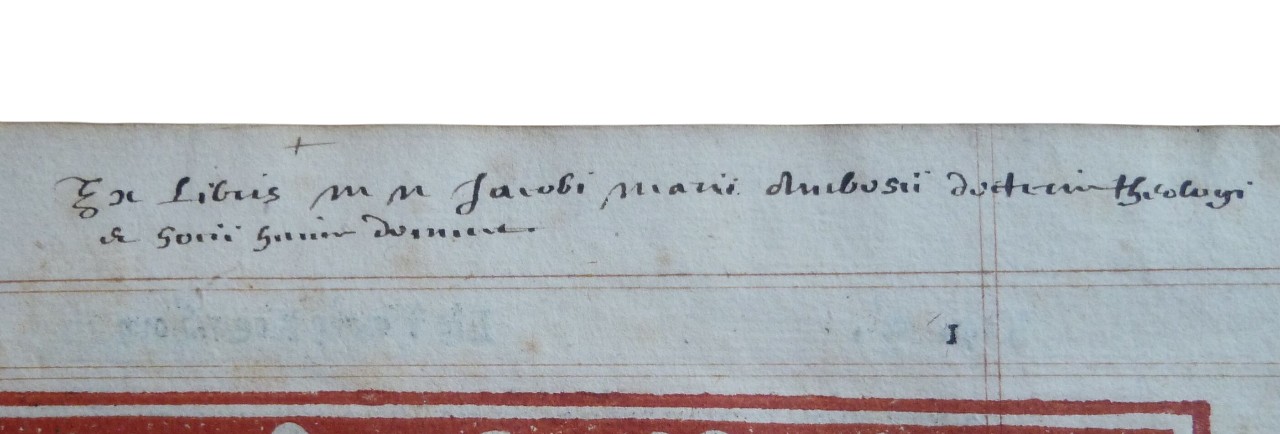 Ex Libris m n Jacobi Marii Ambosii doctoris theologi
& Socii huius domus.
1